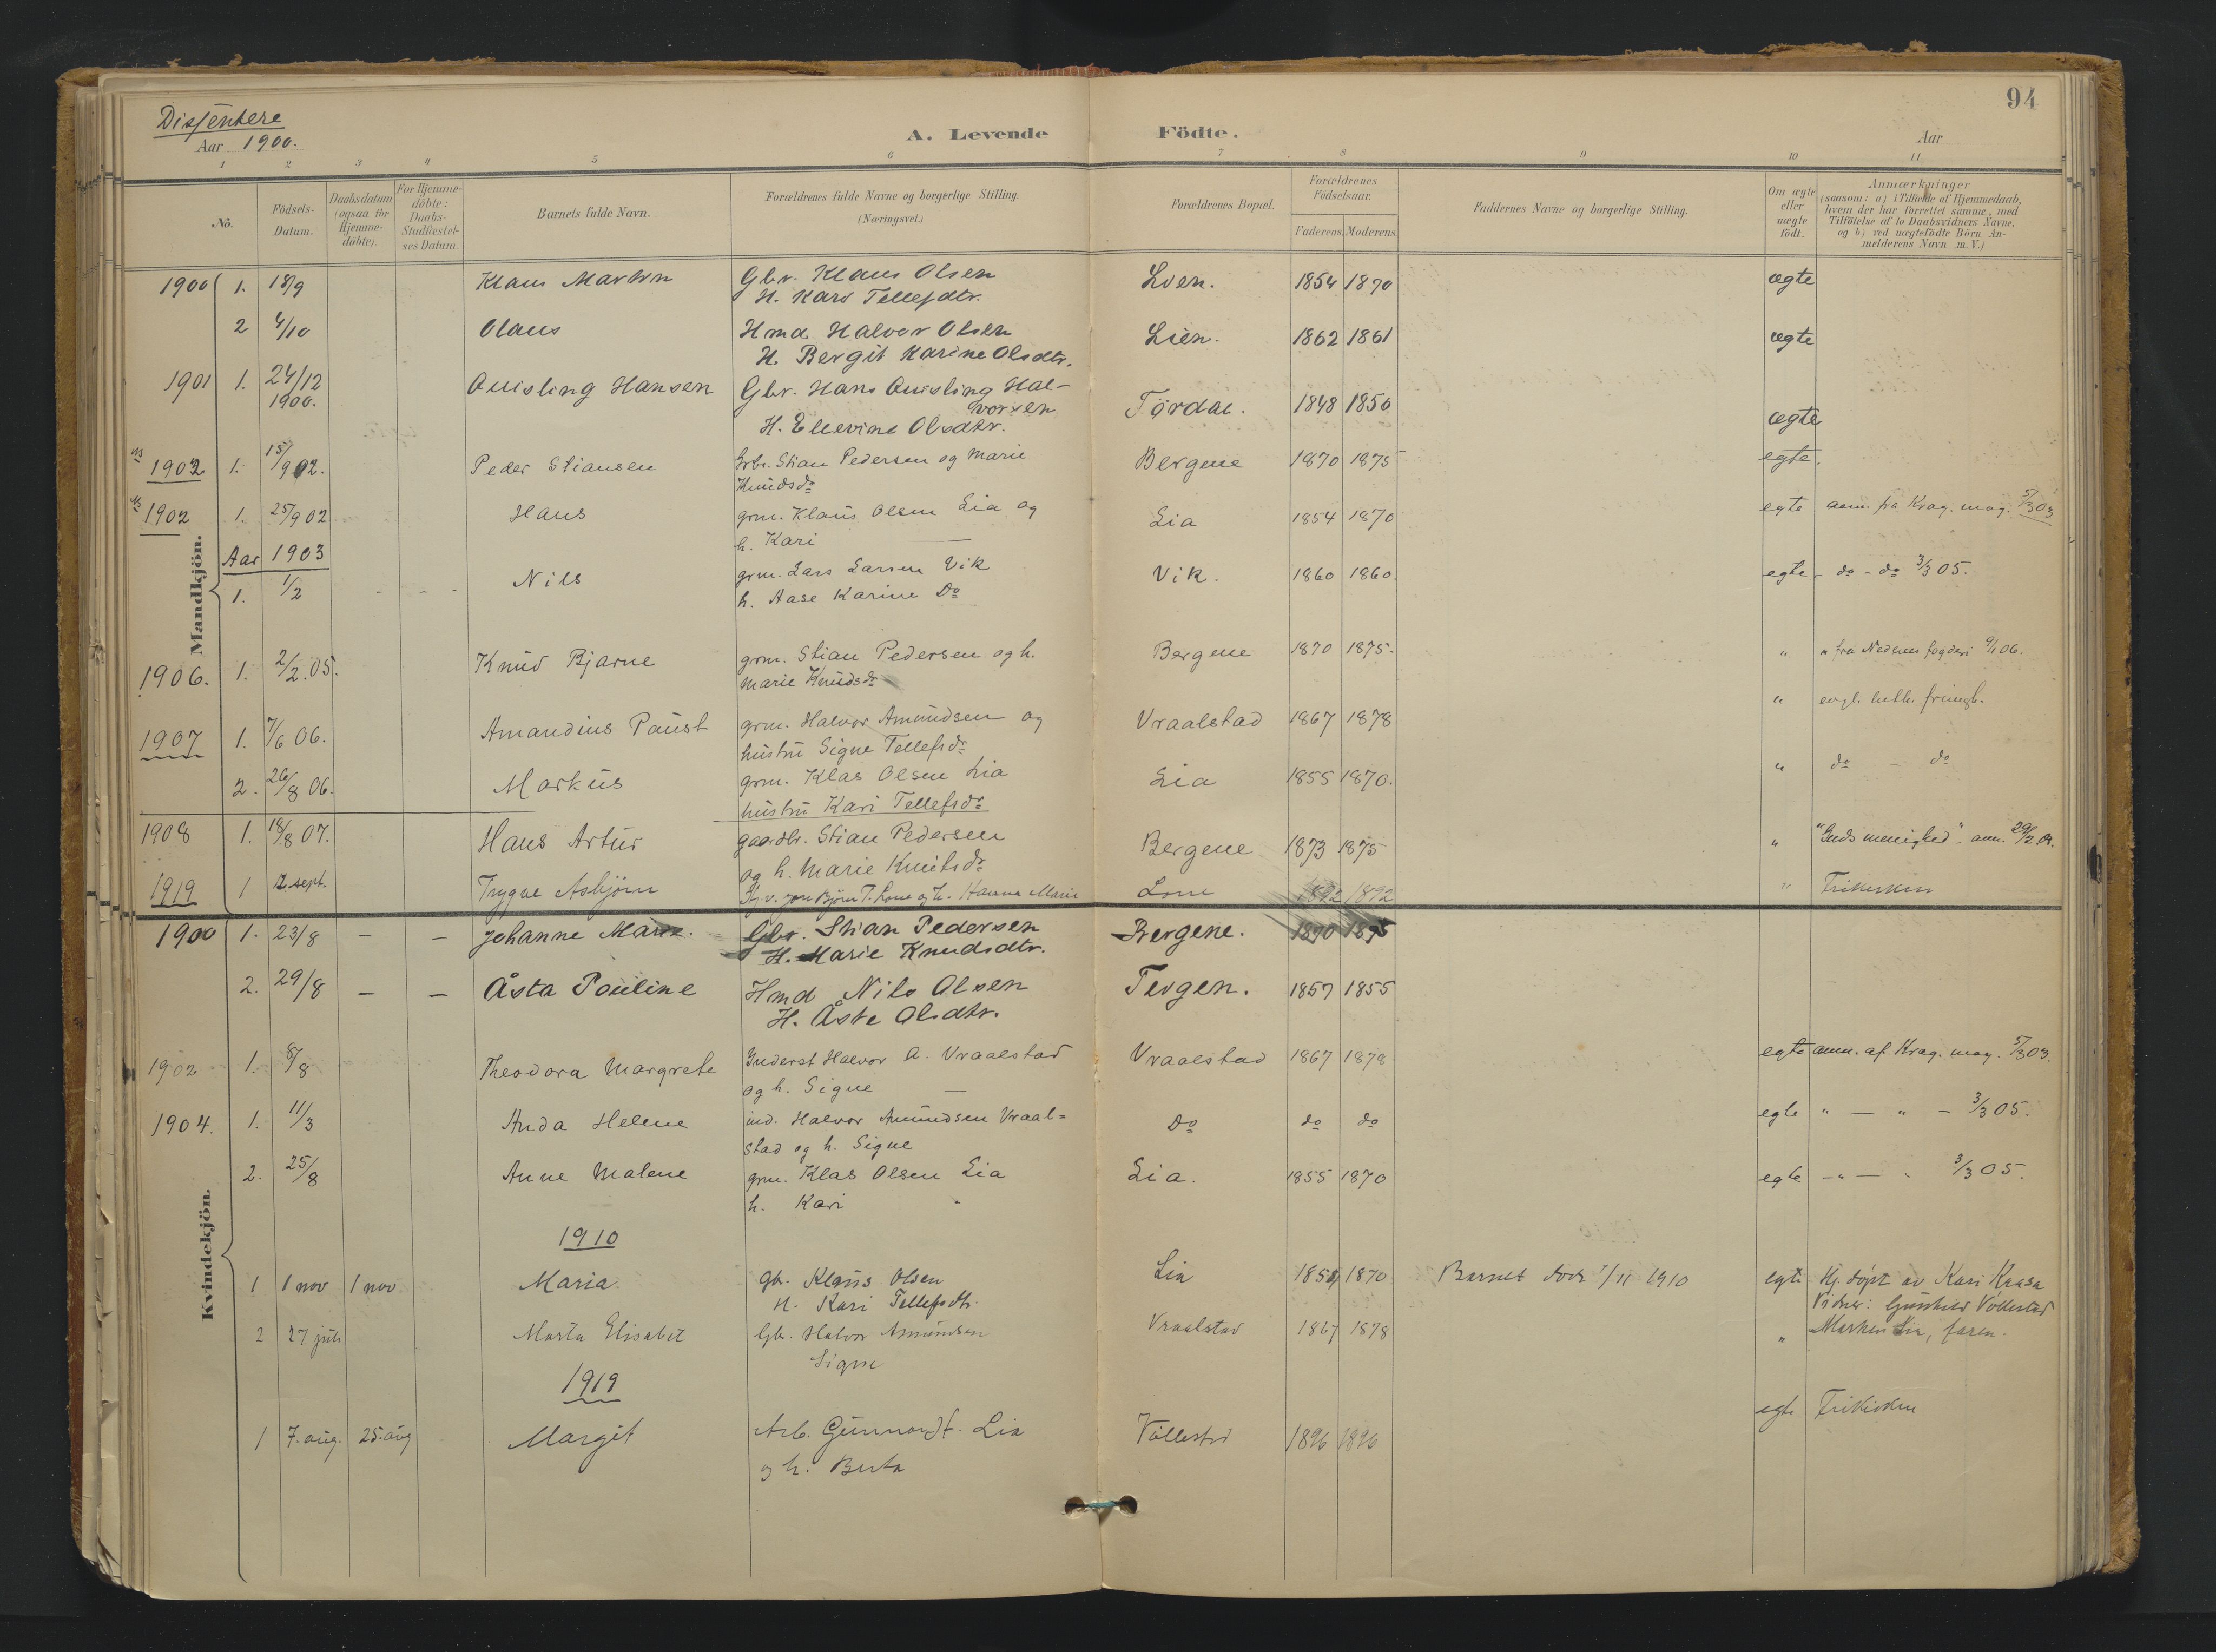 94
Dissentere
Aar 1900.
A. Levende Födte.
Aar
1 2 3 4 5 6 7 8 9 10 11
No.
Födsels-Datum.
Daabsdatum (ogsaa för Hjemme-döbte).
For Hjemme-döbte: Daabs-Stadfæstel-ses Datum.
Barnets fulde Navn.
Forældrenes fulde Navne og borgerlige Stilling.
(Næringsvei.)
Forældrenes Bopæl.
Forældrenes Födselsaar.
Faderens. Moderens.
Faddernes Navne og borgerlige Stilling.
Om ægte eller uægte födt.
Anmærkninger
(saasom: a) i Tilfælde af Hjemmedaab,
hvem der har forrettet samme, med
Tilföielse af to Daabsvidners Navne.
og b) ved uægtefödte Börn An-
melderens Navn m. V.)
Mandkjön.
1900 1. 18/9 Klaus Martin Gbr. Klaus Olsen Lien. 1854 1870 ægte
H. Kari Tellefsdtr.
2 4/10 Olaus Hmd. Halvor Olsen Lien. 1862 1861 ægte
H. Bergit Karine Olsdtr.
1901 1. 24/12 1900. Quisling Hansen Gbr. Hans Quisling Hal-
vorsen Tørdal. 1848 1850 ægte
H. Ellevine Olsdtr.
1902 1. 15/9 02. Peder Stiansen Grbr. Stian Pedersen og Marie Bergene 1870 1875 egte.
Knudsdr
1902 1. 25/9 02 Hans grm. Klaus Olsen Lia og Lia 1854 1870 egte anm. fra Krag. mag. 5/3 03
h. Kari —
Aar 1903
1. 1/2 - - - Nils grm. Lars Larsen Vik Vik. 1860 1860. egte - do - do 3/3 05.
h. Aase Karine Do
1906. 1. 2/2.05. Knud Bjarne grm. Stian Pedersen og h. Bergene 1870 1875. " " fra Nedenes fogderi 9/1 06.
Marie Knudsdr
1907 1. 7/6 06. Amandius Paust grm. Halvor Amundsen og Vraalstad 1867 1878 " evgl. luth. frimgh.
hustru Signe Tellefsdr
2. 26/8 06. Markus grm. Klas Olsen Lia Lia 1855 1870. " do — do
hustru Kari Tellefsdr
1908 1. 18/8 07. Hans Artur gaardbr. Stian Pedersen Bergene 1873 1875 " "Guds menighed" anm.
og h. Marie Knutsdr
1919 1 2 sept. Trygve Asbjørn Jon Bjørn T. Lone og h. Hanna Marie Lone 1892 1892 " Frikirken
Kvindekjön.
1900 1. 23/8 — — Johanne Marie. Gbr. Stian Pedersen Bergene. 1870 1875
H. Marie Knudsdtr.
2. 29/8 — — Åsta Pouline Hmd Nils Olsen Tevgen. 1857 1855
H. Åste Olsdtr.
1902 1. 8/8 Theodora Margrete Inderst Halvor A. Vraalstad Vraalstad 1867 1878 egte anm. af Krag. mag. 5/3 03.
og h. Signe —
1904. 1. 11/3 Anda Helene ind. Halvor Amundsen Vraal= Do do do egte " — " — 3/3 05.
stad og h. Signe
2. 25/8 Anne Malene grm. Klas Olsen Lia Lia. 1855 1870 egte - " — " 3/3 05.
h. Kari "
1910
1 1 nov 1 nov. Maria Gb. Klaus Olsen Lia 1854 1870 Barnet døde 1/11 1910 egte Hj. døpt av Kari Kraasa
H. Kari Tellefsdtr. Vidner: Gunhild Vøllestad
2 27 juli Marta Elisabet Gb. Halvor Amundsen Vraalstad 1867 1878 " Marken Lia, faren.
Signe
1919
1 7. aug. 25. aug Margit Arb. Gunnar Lia Vøllestad 1896 1896 egte Frikirken
og h. Berta